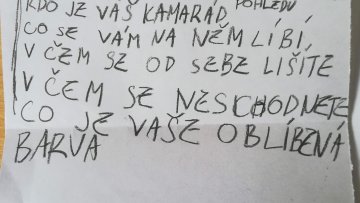 KDO JE VÁŠ KAMARÁD POHLEDU
CO SE VÁM NA NĚM LÍBÍ
V ČEM SE OD SEBE LIŠÍTE
V ČEM SE NESCHODNETE
CO JE VAŠE OBLÍBENÁ
BARVA